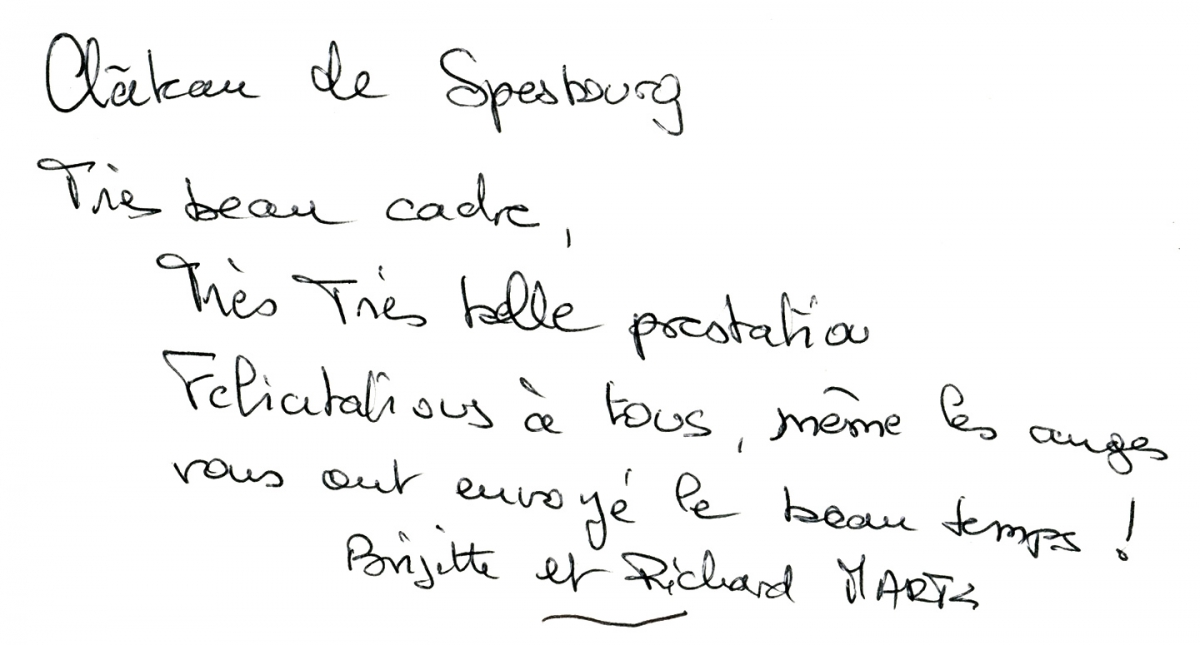 Château de Spesbourg
Très beau cadre,
Très Très belle prestation
Felicitations à tous, même les anges
vous ont envoyé le beau temps !
Brigitte et Richard MARTZ